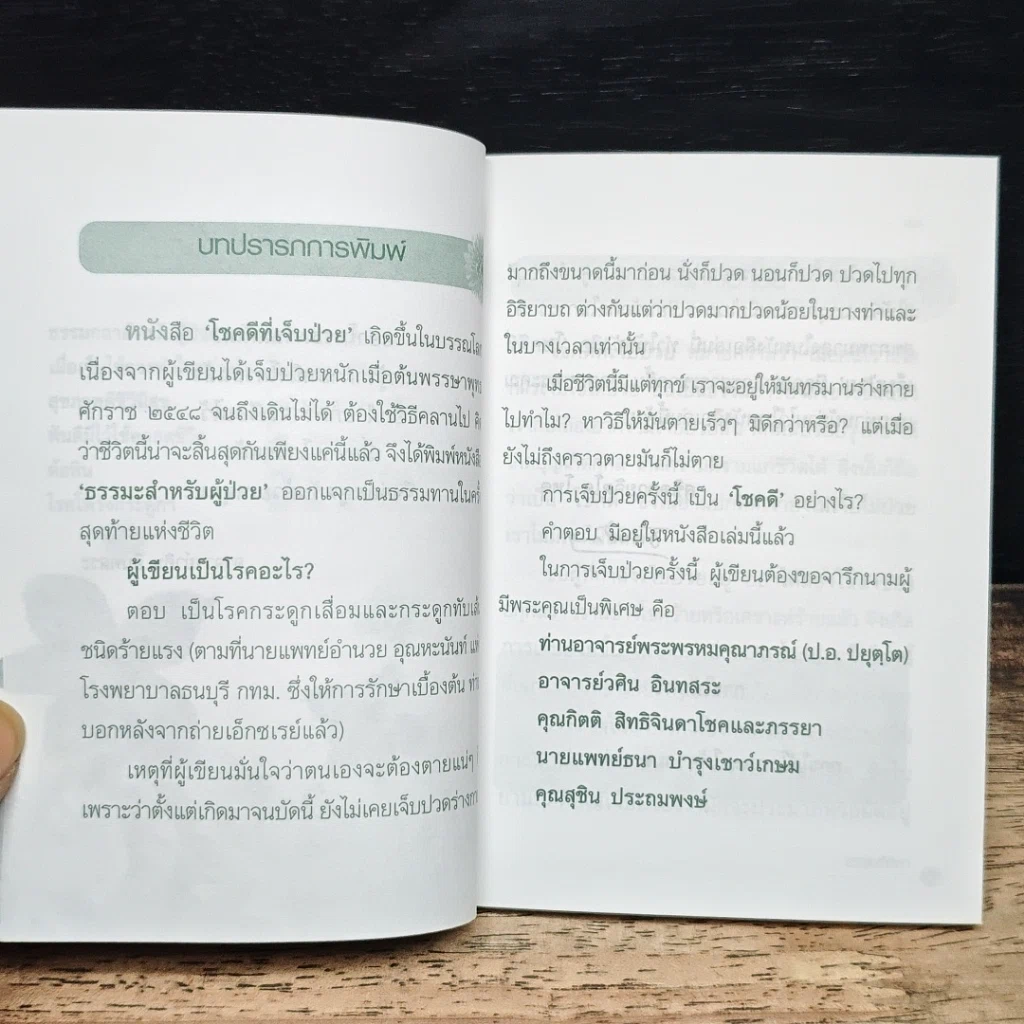 บทปรารภการพิมพ์
หนังสือ ‘โชคดีที่เจ็บป่วย’ เกิดขึ้นในบรรณโล
เนื่องจากผู้เขียนได้เจ็บป่วยหนักเมื่อต้นพรรษาพุทธ
ศักราช ๒๕๔๘ จนถึงเดินไม่ได้ ต้องใช้วิธีคลานไป
ว่าชีวิตนี้น่าจะสิ้นสุดกันเพียงแค่นี้แล้ว จึงได้พิมพ์หนังสือ
‘ธรรมะสำหรับผู้ป่วย’ ออกแจกเป็นธรรมทานในครั้
สุดท้ายแห่งชีวิต
ผู้เขียนเป็นโรคอะไร?
ตอบ เป็นโรคกระดูกเสื่อมและกระดูกทับเส้
ชนิดร้ายแรง (ตามที่นายแพทย์อำนวย อุณหะนันท์ แพ
โรงพยาบาลธนบุรี กทม. ซึ่งให้การรักษาเบื้องต้น ท่า
บอกหลังจากถ่ายเอ็กซเรย์แล้ว)
เหตุที่ผู้เขียนมั่นใจว่าตนเองจะต้องตายแน่ๆ
เพราะว่าตั้งแต่เกิดมาจนบัดนี้ ยังไม่เคยเจ็บปวดร่างกา
มากถึงขนาดนี้มาก่อน นั่งก็ปวด นอนก็ปวด ปวดไปทุก
อิริยาบถ ต่างกันแต่ว่าปวดมากปวดน้อยในบางท่าและ
ในบางเวลาเท่านั้น
เมื่อชีวิตนี้มีแต่ทุกข์ เราจะอยู่ให้มันทรมานร่างกาย
ไปทำไม? หาวิธีให้มันตายเร็วๆ มิดีกว่าหรือ? แต่เมื่อ
ยังไม่ถึงคราวตายมันก็ไม่ตาย
การเจ็บป่วยครั้งนี้ เป็น ‘โชคดี’ อย่างไร?
คำตอบ มีอยู่ในหนังสือเล่มนี้แล้ว
ในการเจ็บป่วยครั้งนี้ ผู้เขียนต้องขอจารึกนามผู้
มีพระคุณเป็นพิเศษ คือ
ท่านอาจารย์พระพรหมคุณาภรณ์ (ป.อ. ปยุตฺโต)
อาจารย์วศิน อินทสระ
คุณกิตติ สิทธิจินดาโชคและภรรยา
นายแพทย์ธนา บำรุงเชาว์เกษม
คุณสุชิน ประถมพงษ์